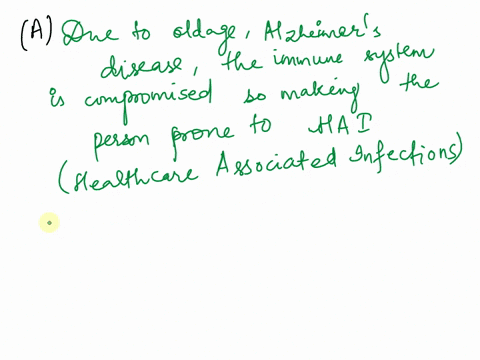 (A) Due to oldage, Alzheimer's
disease, the immune system
is compromised so making the
person prone to HAI
(Healthcare Associated Infections)